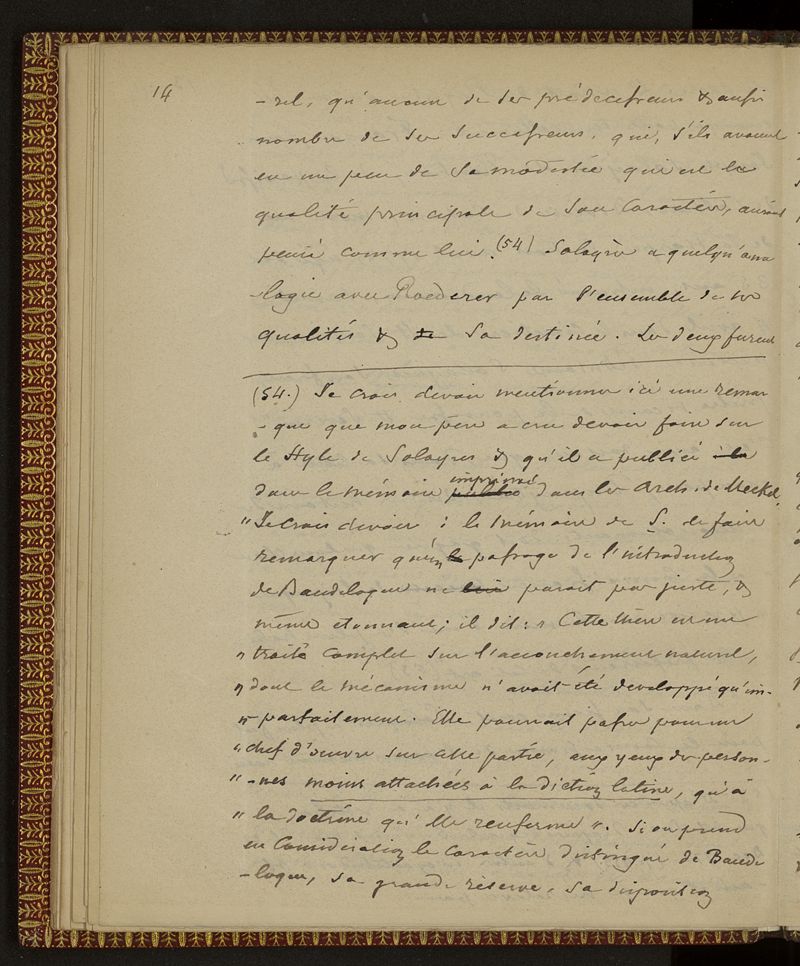 14
-rel, qu'aucun de ses prédécesseurs & aussi
nombre de ses successeurs, qui, s'ils avaient
eu un peu de sa modestie qui est la
qualité principale de son caractère, auraient
pensé comme lui. (54) Solayrès a quelqu'ana
-logie avec Roederer par l'ensemble de ses
qualités & de sa destinée. Les deux furent
(54.) Je crois devoir mentionner ici une remar
-que que mon père a cru devoir faire sur
le style de Solayrès & qu'il a publié
dans le mémoire imprimé dans les Arch. de Meckel.
"Je crois devoir : le mémoire de S. de faire
remarquer qu'un passage de l'introduction
de Baudelogue ne parait pas juste, &
même étonnant; il dit: "Cette thèse est un
" traité complet sur l'accouchement naturel,
" dont le mécanisme n'avait été developpé qu'im-
"-parfaitement. Elle pourrait passer pour un
" chef d'œuvre sur cette partie, aux yeux des person-
"-nes moins attachées à la diction latine, qu'à
" la doctrine qu'elle renferme". Si on prend
en considération le caractère distingué de Baude
-logue, sa grande réserve, sa disposition